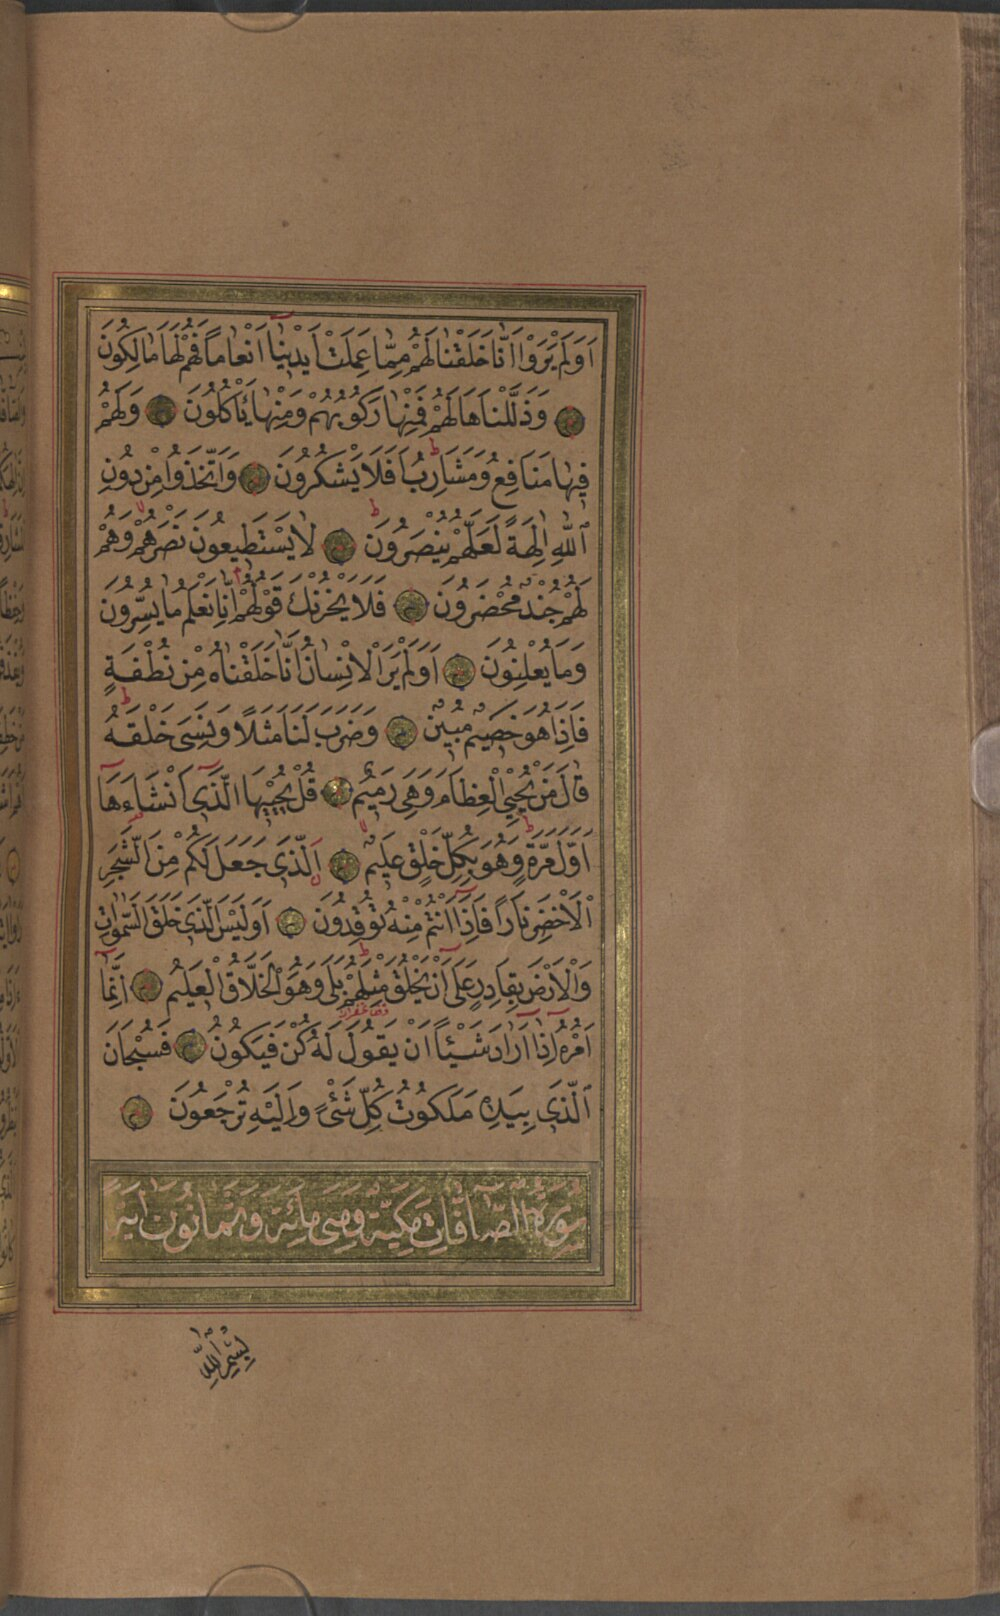 اَوَلَمْ يَرَوْا اَنَّا خَلَقْنَا لَهُمْ مِمَّا عَمِلَتْ اَيْدِينَٓا اَنْعَامًا فَهُمْ لَهَا مَالِكُونَ
وَذَلَّلْنَاهَا لَهُمْ فَمِنْهَا رَكُوبُهُمْ وَمِنْهَا يَأْكُلُونَ وَلَهُمْ
فِيهَا مَنَافِعُ وَمَشَارِبُ اَفَلَا يَشْكُرُونَ وَاتَّخَذُوا مِنْ دُونِ
اللّٰهِ اٰلِهَةً لَعَلَّهُمْ يُنْصَرُونَ لَا يَسْتَطِيعُونَ نَصْرَهُمْ وَهُمْ
لَهُمْ جُنْدٌ مُحْضَرُونَ فَلَا يَحْزُنْكَ قَوْلُهُمْ اِنَّا نَعْلَمُ مَا يُسِرُّونَ
وَمَا يُعْلِنُونَ اَوَلَمْ يَرَ الْاِنْسَانُ اَنَّا خَلَقْنَاهُ مِنْ نُطْفَةٍ
فَاِذَا هُوَ خَصِيمٌ مُبِينٌ وَضَرَبَ لَنَا مَثَلًا وَنَسِىَ خَلْقَهُ
قَالَ مَنْ يُحْيِي الْعِظَامَ وَهِيَ رَمِيمٌ قُلْ يُحْيِيهَا الَّذِٓى اَنْشَاَهَٓا
اَوَّلَ مَرَّةٍ وَهُوَ بِكُلِّ خَلْقٍ عَلِيمٌ اَلَّذِى جَعَلَ لَكُمْ مِنَ الشَّجَرِ
الْاَخْضَرِ نَارًا فَاِذَٓا اَنْتُمْ مِنْهُ تُوقِدُونَ اَوَلَيْسَ الَّذِى خَلَقَ السَّمٰوَاتِ
وَالْاَرْضَ بِقَادِرٍ عَلَٓى اَنْ يَخْلُقَ مِثْلَهُمْ بَلَى وَهُوَ الْخَلَّاقُ الْعَلِيمُ اِنَّمَٓا
اَمْرُهُٓ اِذَٓا اَرَادَ شَيْئًا اَنْ يَقُولَ لَهُ كُنْ فَيَكُونُ فَسُبْحَانَ
الَّذِى بِيَدِهِ مَلَكُوتُ كُلِّ شَىْءٍ وَاِلَيْهِ تُرْجَعُونَ
سُورَةُ الصَّٓافَّاتِ مَكِيَّةٌ وَهِىَ مِائَةٌ وَثَمَانُونَ اٰيَةً
بِسْمِ اللّٰهِ